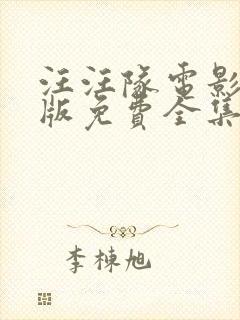 汪汪隊電影
版免費全集
李棟旭